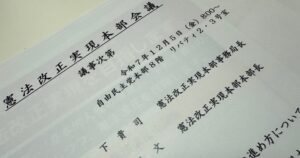 憲法改正実現本部会議
議事次第
令和７年１２月５日（金）８００～
自由民主党本部８階 リバティ２・３号室
下 貴 司 憲法改正実現本部事務局長
文 憲法改正実現本部本部長
進め方について